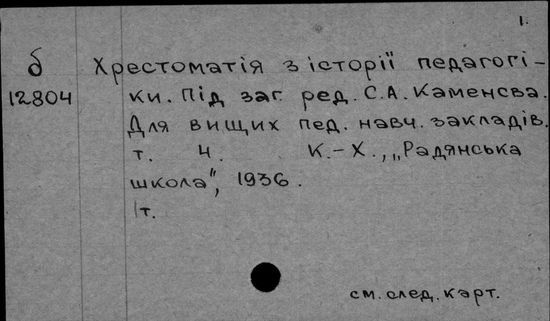 1.
б Хрестоматія з історії педагогі-
12804 ки. Під заг. ред. С.А. Каменєва.
Для вищих пед. навч. закладів.
т. 4. К.-Х., „Радянська
школа", 1936.
т.
см. след. карт.